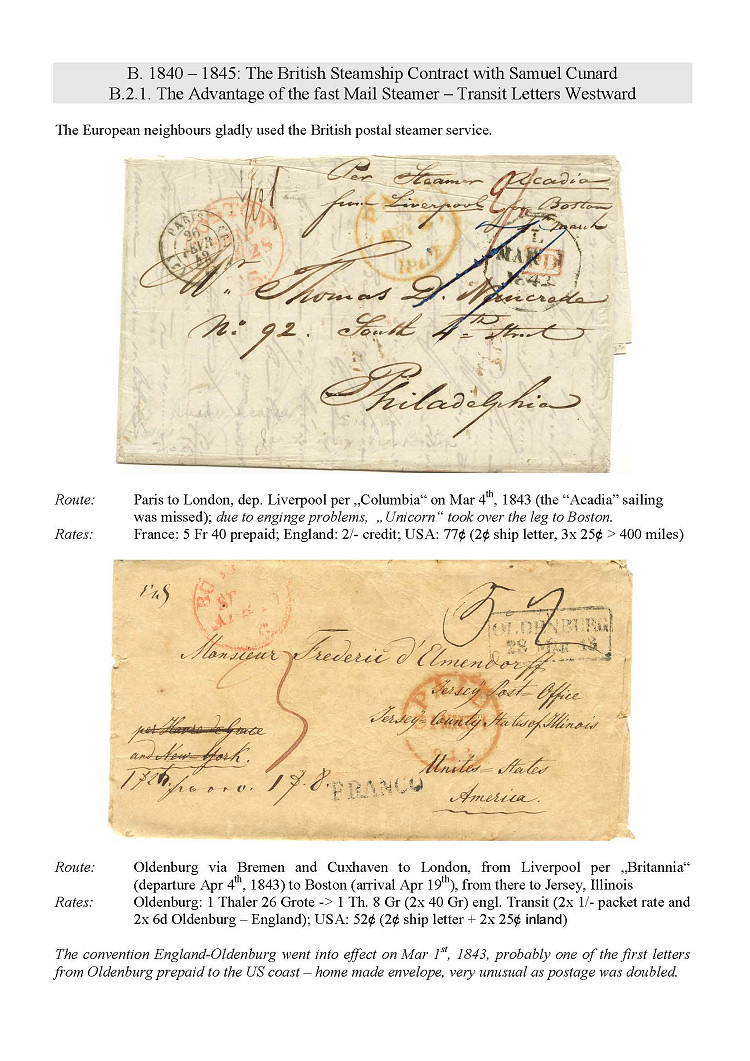 B. 1840 – 1845: The British Steamship Contract with Samuel Cunard
B.2.1. The Advantage of the fast Mail Steamer – Transit Letters Westward
The European neighbours gladly used the British postal steamer service.
Per Steamer Acadia
from Liverpool for Boston
4th March
PARIS
PAID
MAR
1843
Thomas D.
No. 92. South 4th Street
Philadelphia
Route: Paris to London, dep. Liverpool per „Columbia“ on Mar 4th, 1843 (the “Acadia” sailing
was missed); due to enginge problems, „Unicorn“ took over the leg to Boston.
Rates: France: 5 Fr 40 prepaid; England: 2/- credit; USA: 77¢ (2¢ ship letter, 3x 25¢ > 400 miles)
OLDENBURG
28 MAR
Monsieur Frederic d'Elmendorff
Jersey Post-Office
Jersey-County States of Illinois
PAID
per Havre de Grace
and New York.
Unites-States
FRANCO
America.
Route: Oldenburg via Bremen and Cuxhaven to London, from Liverpool per „Britannia“
(departure Apr 4th, 1843) to Boston (arrival Apr 19th), from there to Jersey, Illinois
Rates: Oldenburg: 1 Thaler 26 Grote -> 1 Th. 8 Gr (2x 40 Gr) engl. Transit (2x 1/- packet rate and
2x 6d Oldenburg – England); USA: 52¢ (2¢ ship letter + 2x 25¢ inland)
The convention England-Oldenburg went into effect on Mar 1st, 1843, probably one of the first letters
from Oldenburg prepaid to the US coast – home made envelope, very unusual as postage was doubled.